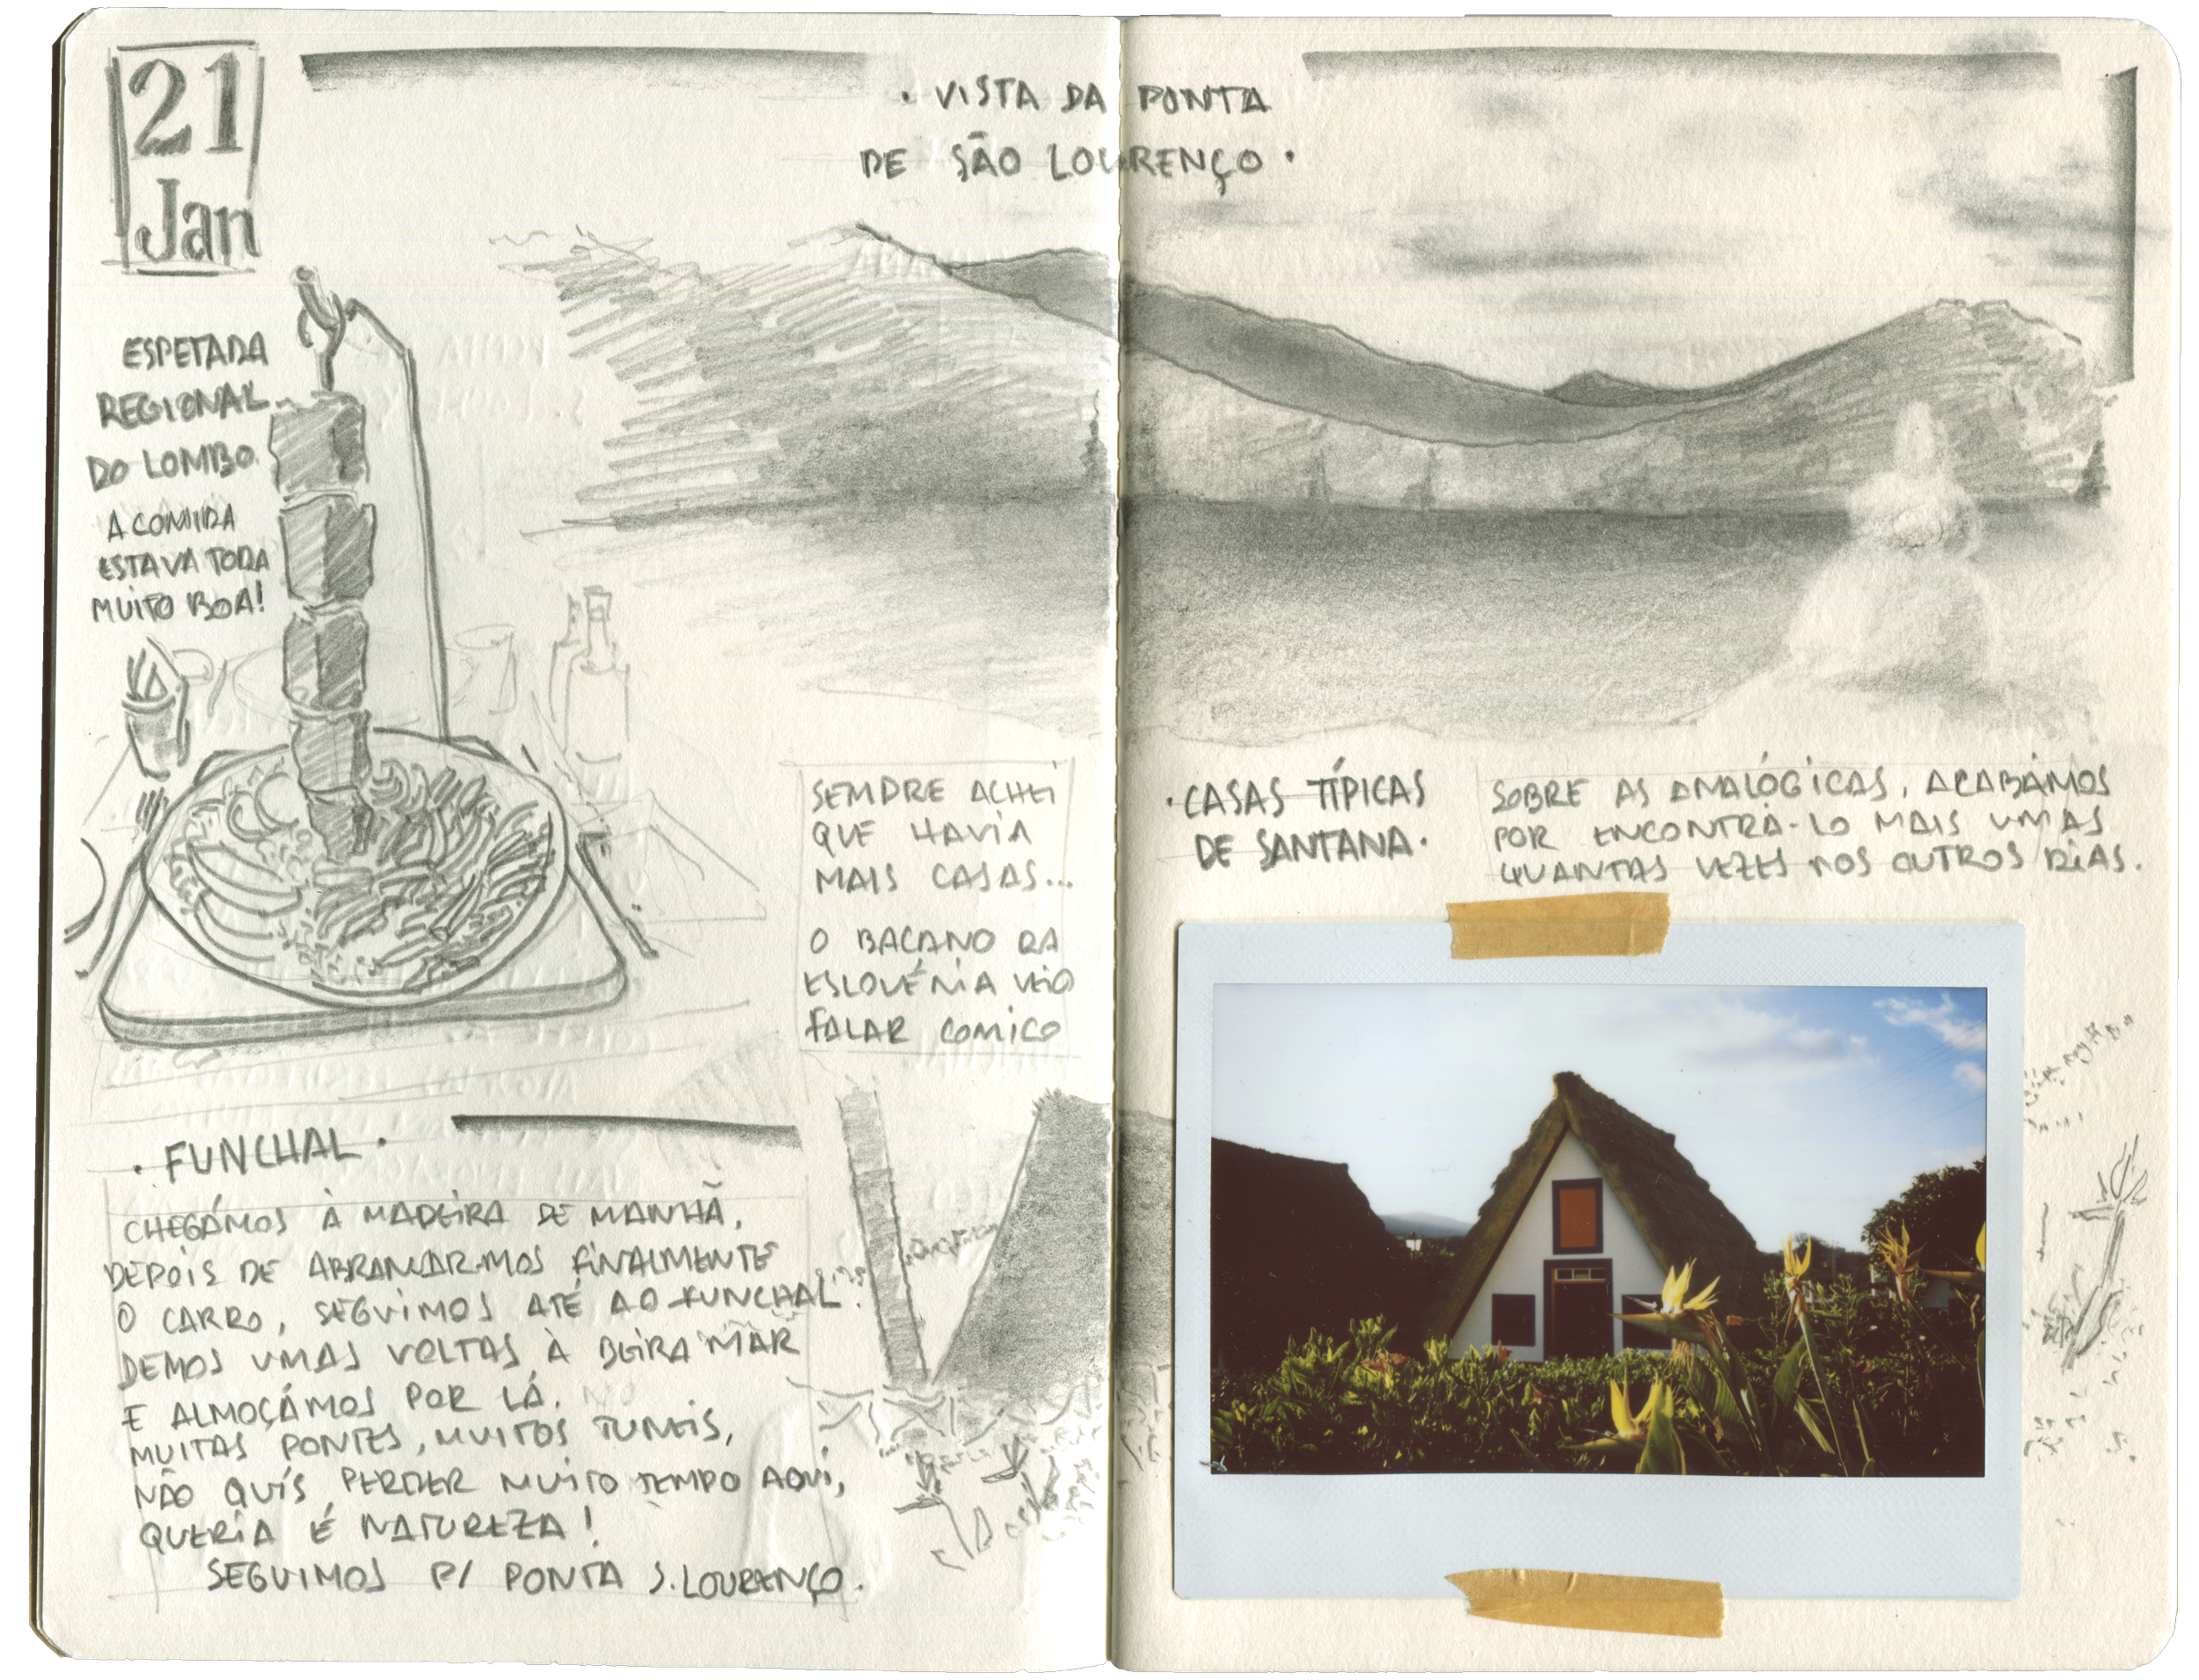 21
Jan
· VISTA DA PONTA
DE SÃO LOURENÇO ·
ESPETADA
REGIONAL
DO LOMBO.
A COMIDA
ESTAVA TODA
MUITO BOA!
· FUNCHAL ·
CHEGÁMOS À MADEIRA DE MANHÃ,
DEPOIS DE ARRANJARMOS FINALMENTE
O CARRO, SEGUIMOS ATÉ AO FUNCHAL.
DEMOS UMAS VOLTAS À BEIRA MAR
E ALMOÇÁMOS POR LÁ.
MUITAS PONTES, MUITOS TUNEIS,
NÃO QUIS PERDER MUITO TEMPO AQUI,
QUERIA É NATUREZA!
SEGUIMOS P/ PONTA S. LOURENÇO.
SEMPRE ACHEI
QUE HAVIA
MAIS CASAS...
O BACANO DA
ESLOVÉNIA VEIO
FALAR COMIGO
· CASAS TÍPICAS
DE SANTANA ·
SOBRE AS ANALÓGICAS, ACABÁMOS
POR ENCONTRÁ-LO MAIS UMAS
QUANTAS VEZES NOS OUTROS DIAS.